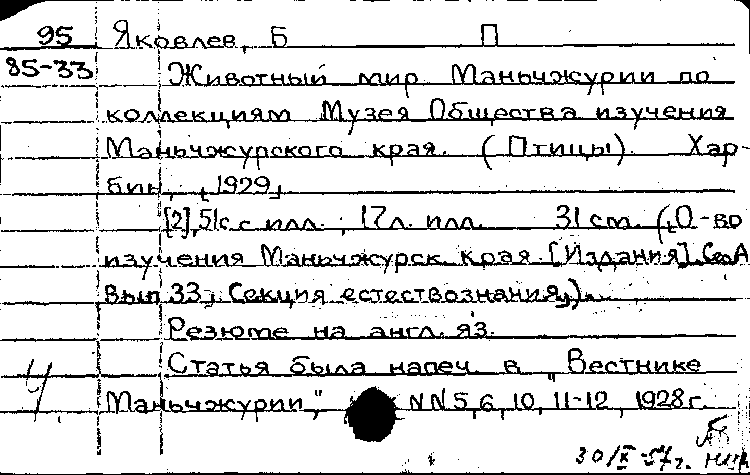 95 Яковлев, Б П
85-33 Животный мир Маньчжурии по
коллекциям Музея Общества изучения
Маньчжурского края. (Птицы). Хар-
бин, [1929]
[2], 51с. с илл.; 17л. илл. 31 см. (О-во
изучения Маньчжурск. края. [Издания]. Сер. А
Вып. 33. Секция естествознания).
Резюме на англ. яз.
Статья была напеч. в "Вестнике
Маньчжурии," NN 5, 6, 10, 11-12, 1928 г.
30/X-57г.